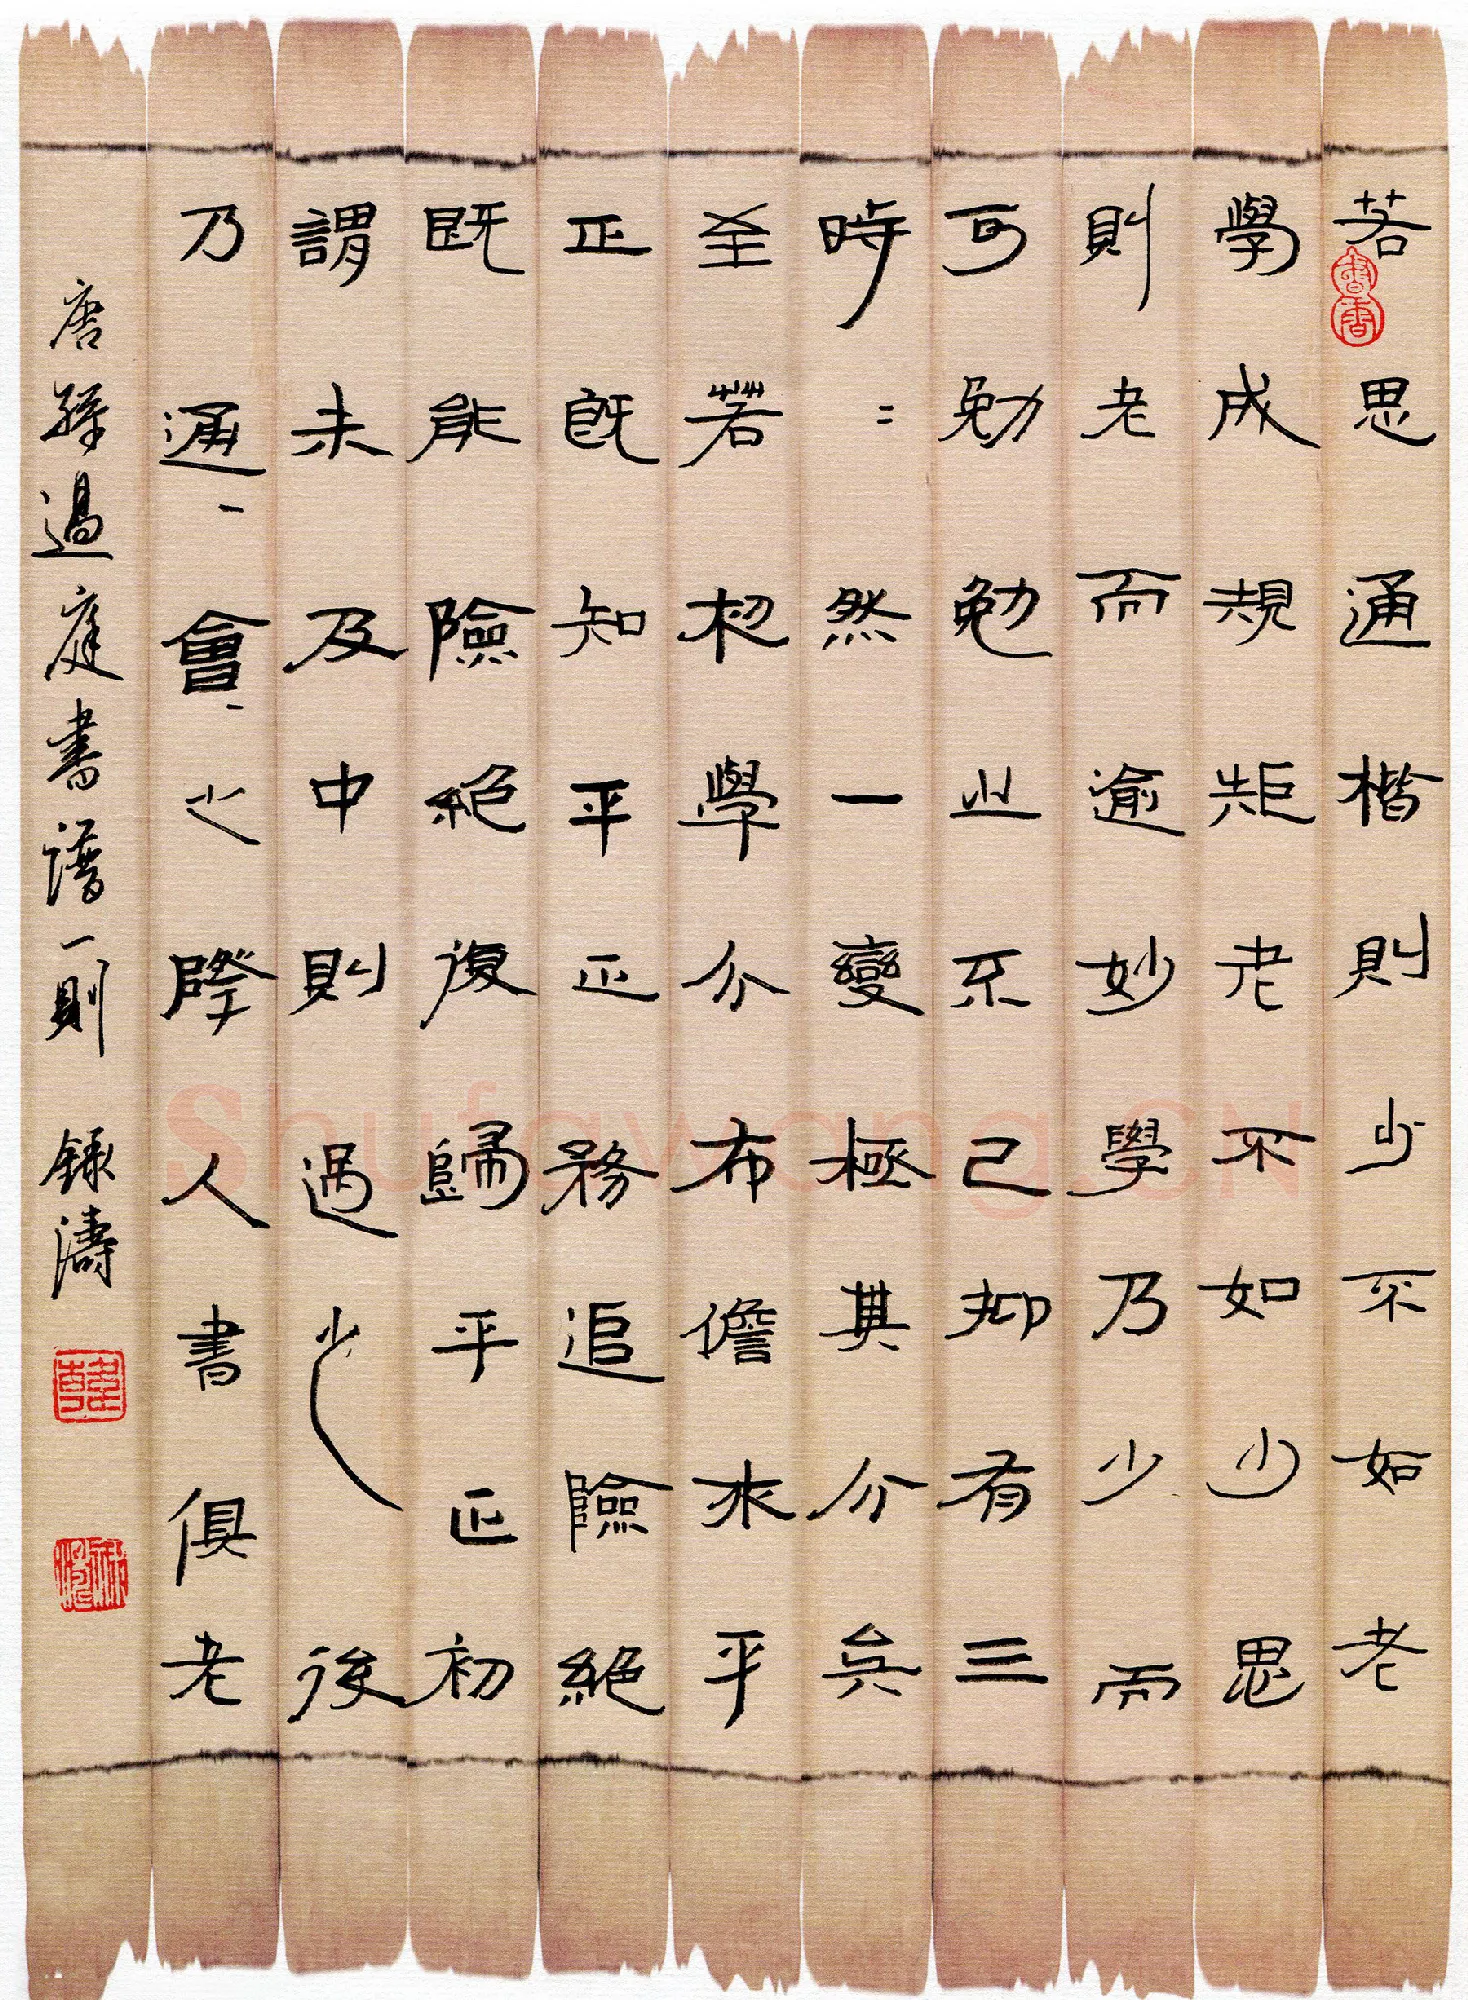 若思通楷則少不如老
學成規矩老不如少思
則老而逾妙學乃少而
可勉勉之不已抑有三
時=然一變極其分矣
至若初學分布儋求平
正既知平正務追險絕
既能險絕復歸平正初
謂未及中則過之後
乃通會之際人書俱老
唐孫過庭書譜一則 錄濤
書香
Shufawang.CN